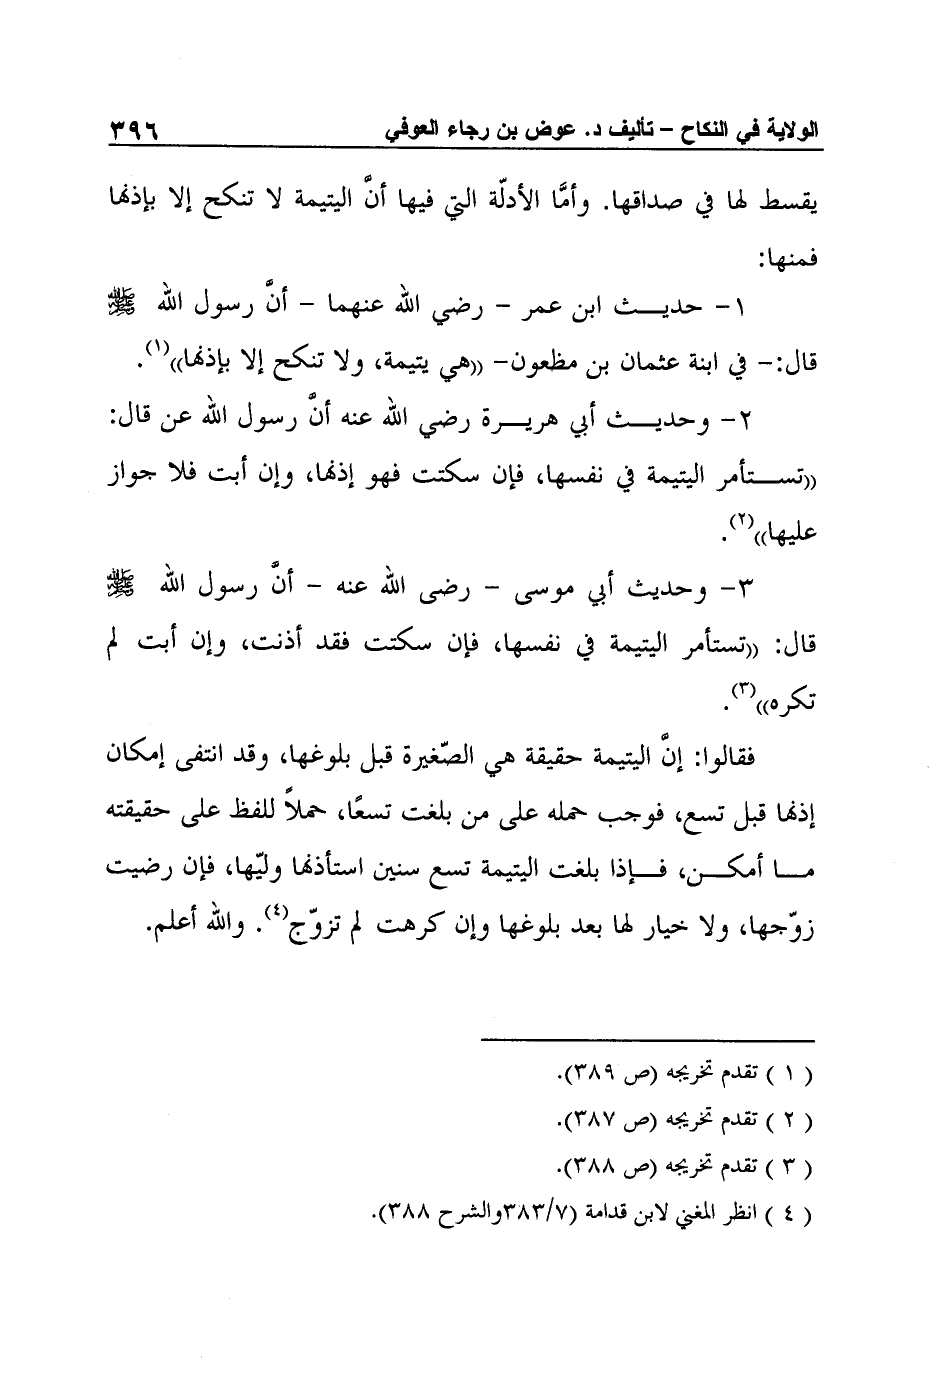 الولاية في النكاح – تأليف د. عوض بن رجاء العوفي ٣٩٦
يقسط لها في صداقها. وأمَّا الأدلّة التي فيها أنَّ اليتيمة لا تنكح إلا بإذنها
فمنها:
١- حديث ابن عمر – رضي الله عنهما – أنَّ رسول الله ﷺ
قال:– في ابنة عثمان بن مظعون– ((هي يتيمة، ولا تنكح إلا بإذنها))(١).
٢- وحديث أبي هريرة رضي الله عنه أنَّ رسول الله عن قال:
((تستأمر اليتيمة في نفسها، فإن سكتت فهو إذنها، وإن أبت فلا جواز
عليها))(٢).
٣- وحديث أبي موسى – رضى الله عنه – أنَّ رسول الله ﷺ
قال: ((تستأمر اليتيمة في نفسها، فإن سكتت فقد أذنت، وإن أبت لم
تكره))(٣).
فقالوا: إنَّ اليتيمة حقيقة هي الصّغيرة قبل بلوغها، وقد انتفى إمكان
إذنها قبل تسع، فوجب حمله على من بلغت تسعًا، حملاً للفظ على حقيقته
ما أمكن، فإذا بلغت اليتيمة تسع سنين استأذنها وليّها، فإن رضيت
زوّجها، ولا خيار لها بعد بلوغها وإن كرهت لم تزوّج(٤). والله أعلم.
( ١ ) تقدم تخريجه (ص ٣٨٩).
( ٢ ) تقدم تخريجه (ص ٣٨٧).
( ٣ ) تقدم تخريجه (ص ٣٨٨).
( ٤ ) انظر المغني لابن قدامة (٣٨٣/٧والشرح ٣٨٨).